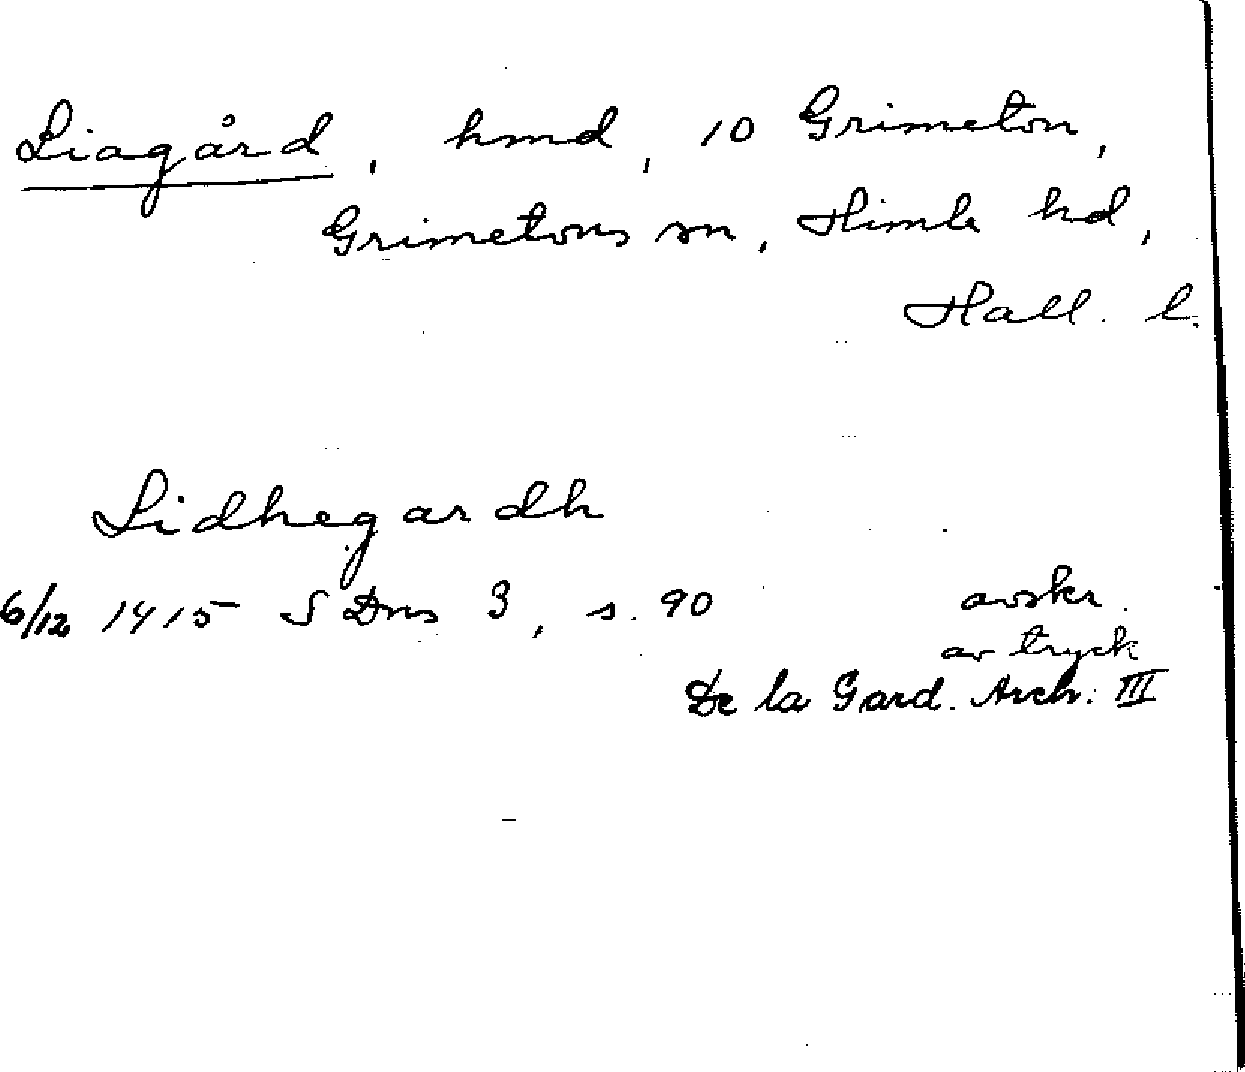 Liagård, hmd, 10 Grimeton,
Grimetons sn, Himle hd,
Hall. l.
Lidhegardh
6/12 1415 S Dns 3, s. 90 avskr.
av tryck
De la Gard. Arch. III